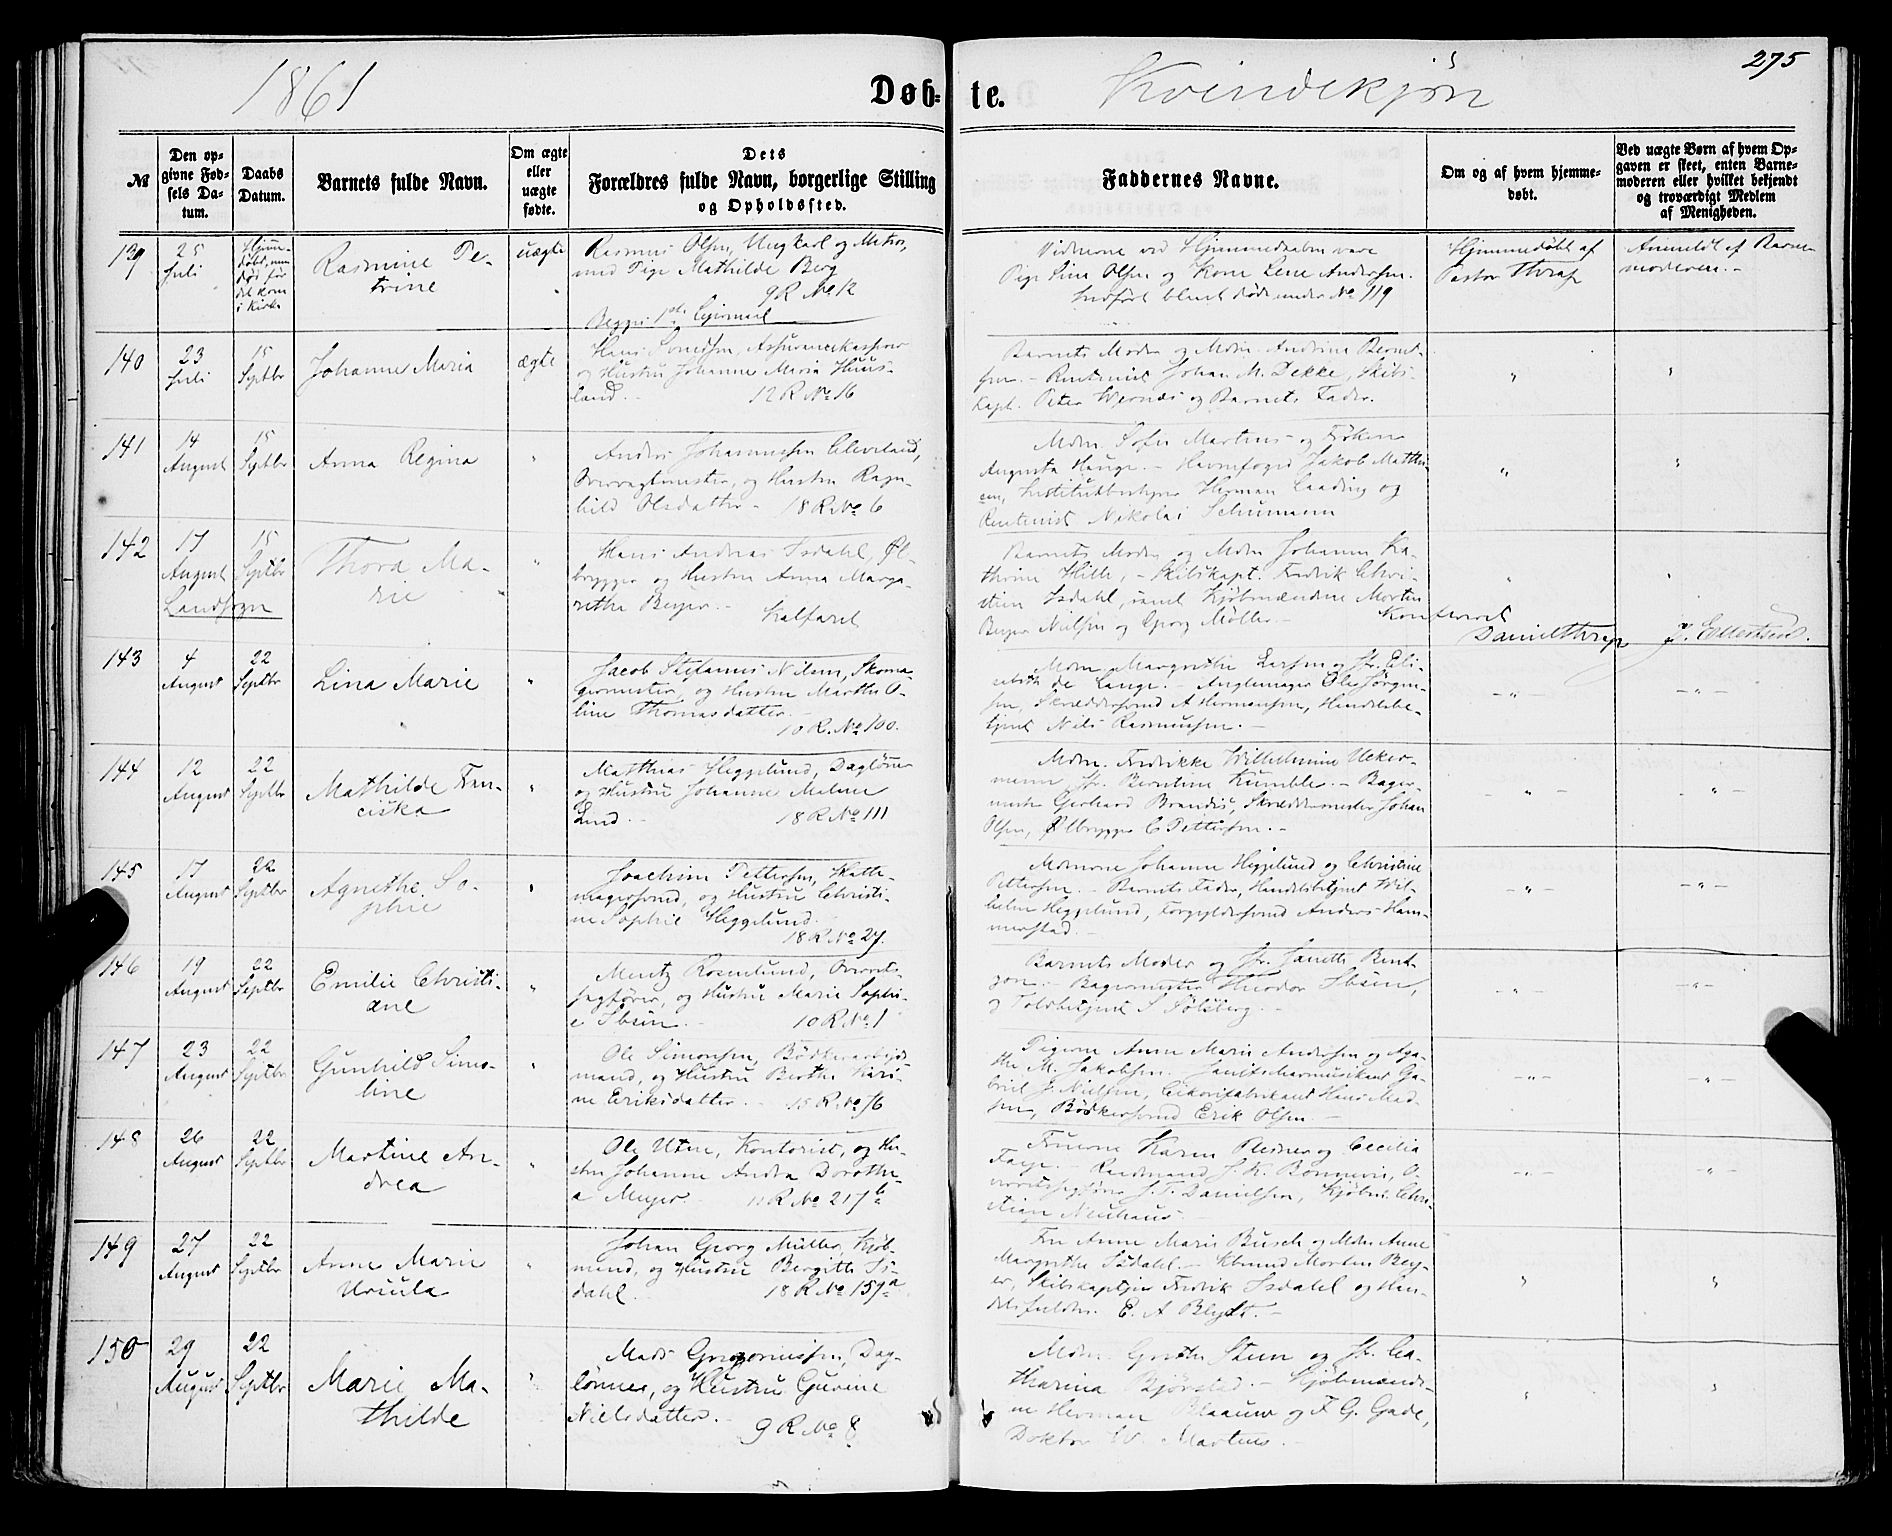 275
1861
Døb-
te.
Kvindekjøn
№
Den op-
givne Fød-
sels Da-
tum.
Daabs
Datum.
Barnets fulde Navn.
Om ægte
eller
uægte
fødte.
Dets
Forældres fulde Navn, borgerlige Stilling
og Opholdssted.
Faddernes Navne.
Om og af hvem hjemme-
døbt.
Ved uægte Børn af hvem Op-
gaven er skeet, enten Barne-
moderen eller hvilket bekjendt
og troværdigt Medlem
af Menigheden.
139
25
Juli
Hjem-
døbt, men
død før
det kom
i Kirke
Rasmine Pe-
trine
uægte
Rasmus Olsen, Ungkarl og Matros,
med Pige Mathilde Berg
9 R No 12
Begges 1ste Leiermaal
Vidnerne ved Hjemmedaaben vare
Pige Lina Olsen og Kone Lene Andersen.
Indført blandt døde under No 119
Hjemmedøbt af
Pastor Thrap
Anmeldt af Barne-
moderen.-
140
23
Juli
15
Septbr
Johanne Maria
ægte
Hans Svendsen, Assurancekasserer
og Hustru Johanne Maria Huus-
land.- 12 R No 16
Barnets Moder og Mdm Andrina Bernt-
sen.- Rentenist Johan M. Dekke, Skibs-
kapt. Peter Wernæs og Barnets Fader.
"
"
141
14
August
15
Septbr
Anna Regina
"
Anders Johannessen Cleveland,
Overvagtmester, og Hustru Ragn-
hild Olsdatter - 18 R No 6
Mdm Sofie Martens og Frøken
Augusta Hauge.- Havnefoged Jakob Matthi-
esen, Institutbestyrer Herman Laading og
Rentenist Nikolai Schumann
"
"
142
17
August
Landsogn
15
Septbr
Thora Ma-
rie
"
Hans Andreas Isdahl, Øl-
brygger og Hustru Anna Marga-
rethe Beyer.- Kalfaret
Barnets Moder og Mdm Johanne Ka-
thrine Hille, - Skibskapt. Fredrik Chri-
stian Isdahl, samt Kjøbmændene Morten
Beyer Nielsen og Georg Møller.-
"
"
Konfereret
Daniel Thrap
J. Ellertsen.
143
4
August
22
Septbr
Lina Marie
"
Jacob Stefanus Nilsen, Skoma-
germester, og Hustru Marthe O-
line Thomasdatter.-
10 R. No 100.
Mdm Margrethe Larsen og Jfr. Eli-
sabeth de Lange.- Anglemager Ole Jørgen-
sen, Skræddersvend A Hermansen, Handelsbe-
tjent Nils Rasmussen.-
- " -
- " -
144
12
August
22
Septbr
Mathilde Fran-
ciska
"
Matthias Heggelund, Dagløner
og Hustru Johanne Malene
Lund.- 18 R No 111
Mdm. Fredrikke Wilhelmine Ucker-
mann Jfr. Berntine Kümble.- Bager-
mester Gerhard Brandis, Skræddermester Johan
Olsen, Ølbrygger C Pettersen.-
- " -
- " -
145
17
August
22
Septbr
Agnethe So-
phie
"
Joachim Pettersen, Hatte-
magersvend, og Hustru Christi-
ne Sophie Heggelund.
18 R No 27.
Mdmerne Johanne Heggelund og Christine
Pettersen.- Barnets Fader, Handelsbetjent Wil-
helm Heggelund, Forgyldersvend Anders Ham-
merstad.-
- " -
- " -
146
19
August
22
Septbr
Emilie Christi-
ane
"
Mentz Rosenlund, Overrets-
sagfører, og Hustru Marie Sophi-
e Ibsen.- 10 R. No 1
Barnets Moder og Jfr. Janette Bent-
zon.- Bagermester Theodor Ibsen,
og Toldbetjent S Sølsberg.-
- " -
- " -
147
23
August
22
Septbr
Gunhild Simo-
line
"
Ole Simonsen, Bødkerarbeids-
mand, og Hustru Berthe Kari-
ne Eriksdatter.- 15 R. No 76
Pigerne Anne Marie Andersen og Aga-
the M. Jakobsen. Janitsharmusikant Ga-
briel J. Nielsen, Cikorifabrikant Hans Mad-
sen, Bødkersvend Erik Olsen.-
- " -
- " -
148
26
August
22
Septbr
Martine An-
drea
"
Ole Utne, Kontorist, og Hu-
stru Johanne Andrea Dorothe-
a Meyer.- 11 R No 217 b
Fruerne Karen Plesner og Cecilia
Faye. Raadmand J. K. Bonnevie, O-
verretssagfører J. T. Danielsen, Kjøbm. Chri-
stian Neuhaus.-
- " -
- " -
149
27
August
22
Septbr
Anne Marie
Ursula
"
Johan Georg Müller, Kjøb-
mand, og Hustru Bergitte Is-
dahl.- 18 R No 157 a
Fru Anne Marie Busch og Mdm Anne
Margrethe Isdahl.- Kbmnd Morten Bey-
er, Skibskaptein Fredrik Isdahl og Han-
delsfuldm. E. A Blytt.-
"
"
150
29
August
22
Septbr
Marie Ma-
thilde
"
Mads Gregoriussen, Dag-
lønner, og Hustru Gurine
Nielsdatter.-
9 R No 8
Mdm. Grethe Steen og Jfr. Ca-
tharina Bjørstad.- Kjøbmænde-
ne Herman Blaauw og F. G. Gade,
Doktor W. Martens.-
"
"